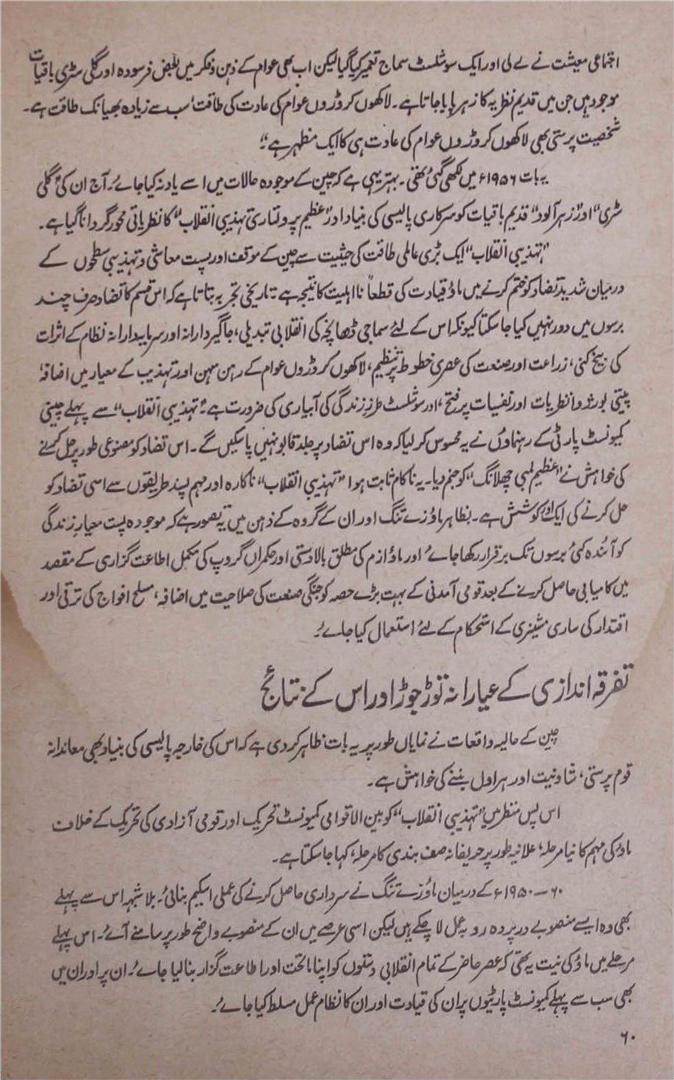 اجتماعی معیشت نے لے لی اور ایک سوشلسٹ سماج تعمیر کیا گیا لیکن اب بھی عوام کے ذہن و فکر میں بعض فرسودہ اور گلی سڑی باقیات
موجود ہیں جن میں قدیم نظریہ کا زہر پایا جاتا ہے۔ لاکھوں کروڑوں عوام کی عادت کی طاقت سب سے زیادہ بھیانک طاقت ہے۔
شخصیت پرستی بھی لاکھوں کروڑوں عوام کی عادت ہی کا ایک مظہر ہے"۔
یہ بات ۱۹۵۶ء میں لکھی گئی تھی۔ بہتر یہی ہے کہ چین کے موجودہ حالات میں اسے یاد نہ کیا جائے۔ آج ان کی "گلی
سڑی" اور "زہر آلود" قدیم باقیات کو سرکاری پالیسی کی بنیاد اور "عظیم پرولتاری تہذیبی انقلاب" کا نظریاتی محور گردانا گیا ہے۔
"تہذیبی انقلاب" ایک بڑی عالمی طاقت کی حیثیت سے چین کے موقف اور پست معاشی و تہذیبی سطحوں کے
درمیان شدید تضاد کو ختم کرنے میں ماؤ قیادت کی قطعاً نااہلیت کا نتیجہ ہے۔ تاریخی تجربہ بتاتا ہے کہ اس قسم کا تضاد صرف چند
برسوں میں دور نہیں کیا جا سکتا کیونکہ اس کے لئے سماجی ڈھانچہ کی انقلابی تبدیلی، جاگیردارانہ اور سرمایہ دارانہ نظام کے اثرات
کی بیخ کنی، زراعت اور صنعت کی عصری خطوط پر تنظیم، لاکھوں کروڑوں عوام کے رہن سہن اور تہذیب کے معیار میں اضافہ
پیٹی بورژوا نظریات اور نفسیات پر فتح، اور سوشلسٹ طرز زندگی کی آبیاری کی ضرورت ہے۔ "تہذیبی انقلاب" سے پہلے چینی
کمیونسٹ پارٹی کے رہنماؤں نے یہ محسوس کر لیا کہ وہ اس تضاد پر جلد قابو نہیں پا سکیں گے۔ اس تضاد کو مصنوعی طور پر حل کرنے
کی خواہش نے "عظیم لمبی چھلانگ" کو جنم دیا۔ یہ ناکام ثابت ہوا "تہذیبی انقلاب" ناکارہ اور مہم پسند طریقوں سے اسی تضاد کو
حل کرنے کی ایک کوشش ہے۔ بظاہر ماؤزے تنگ اور ان کے گروہ کے ذہن میں یہ تصور ہے کہ موجودہ پست معیار زندگی
کو آئندہ کئی برسوں تک برقرار رکھا جائے اور ماؤازم کی مطلق بالادستی اور حکمراں گروپ کی مکمل اطاعت گزاری کے مقصد
میں کامیابی حاصل کرنے کے بعد قومی آمدنی کے بہت بڑے حصہ کو جنگی صنعت کی صلاحیت میں اضافہ، مسلح افواج کی ترقی اور
اقتدار کی ساری مشینری کے استحکام کے لئے استعمال کیا جائے۔
تفرقہ اندازی کے عیارانہ توڑ جوڑ اور اس کے نتائج
چین کے حالیہ واقعات نے نمایاں طور پر یہ بات ظاہر کر دی ہے کہ اس کی خارجہ پالیسی کی بنیاد بھی معاندانہ
قوم پرستی، شاونیت اور ہراول بننے کی خواہش ہے۔
اس پس منظر میں "تہذیبی انقلاب" کو بین الاقوامی کمیونسٹ تحریک اور قومی آزادی کی تحریک کے خلاف
ماؤ کی مہم کا نیا مرحلہ، علانیہ طور پر حریفانہ صف بندی کا مرحلہ، کہا جا سکتا ہے۔
۶۰ــ۱۹۵۰ء کے درمیان ماؤزے تنگ نے سرداری حاصل کرنے کی عملی اسکیم بنائی۔ بلا شبہ اس سے پہلے
بھی وہ ایسے منصوبے درپردہ روبہ عمل لا چکے ہیں لیکن اسی عرصے میں ان کے منصوبے واضح طور پر سامنے آئے۔ اس پہلے
مرحلے میں ماؤ کی نیت یہ تھی کہ عصر حاضر کے تمام انقلابی دستوں کو اپنا ماتحت اور اطاعت گزار بنا لیا جائے۔ ان پر اور ان میں
بھی سب سے پہلے کمیونسٹ پارٹیوں پر ان کی قیادت اور ان کا نظام عمل مسلط کیا جائے۔
۶۰